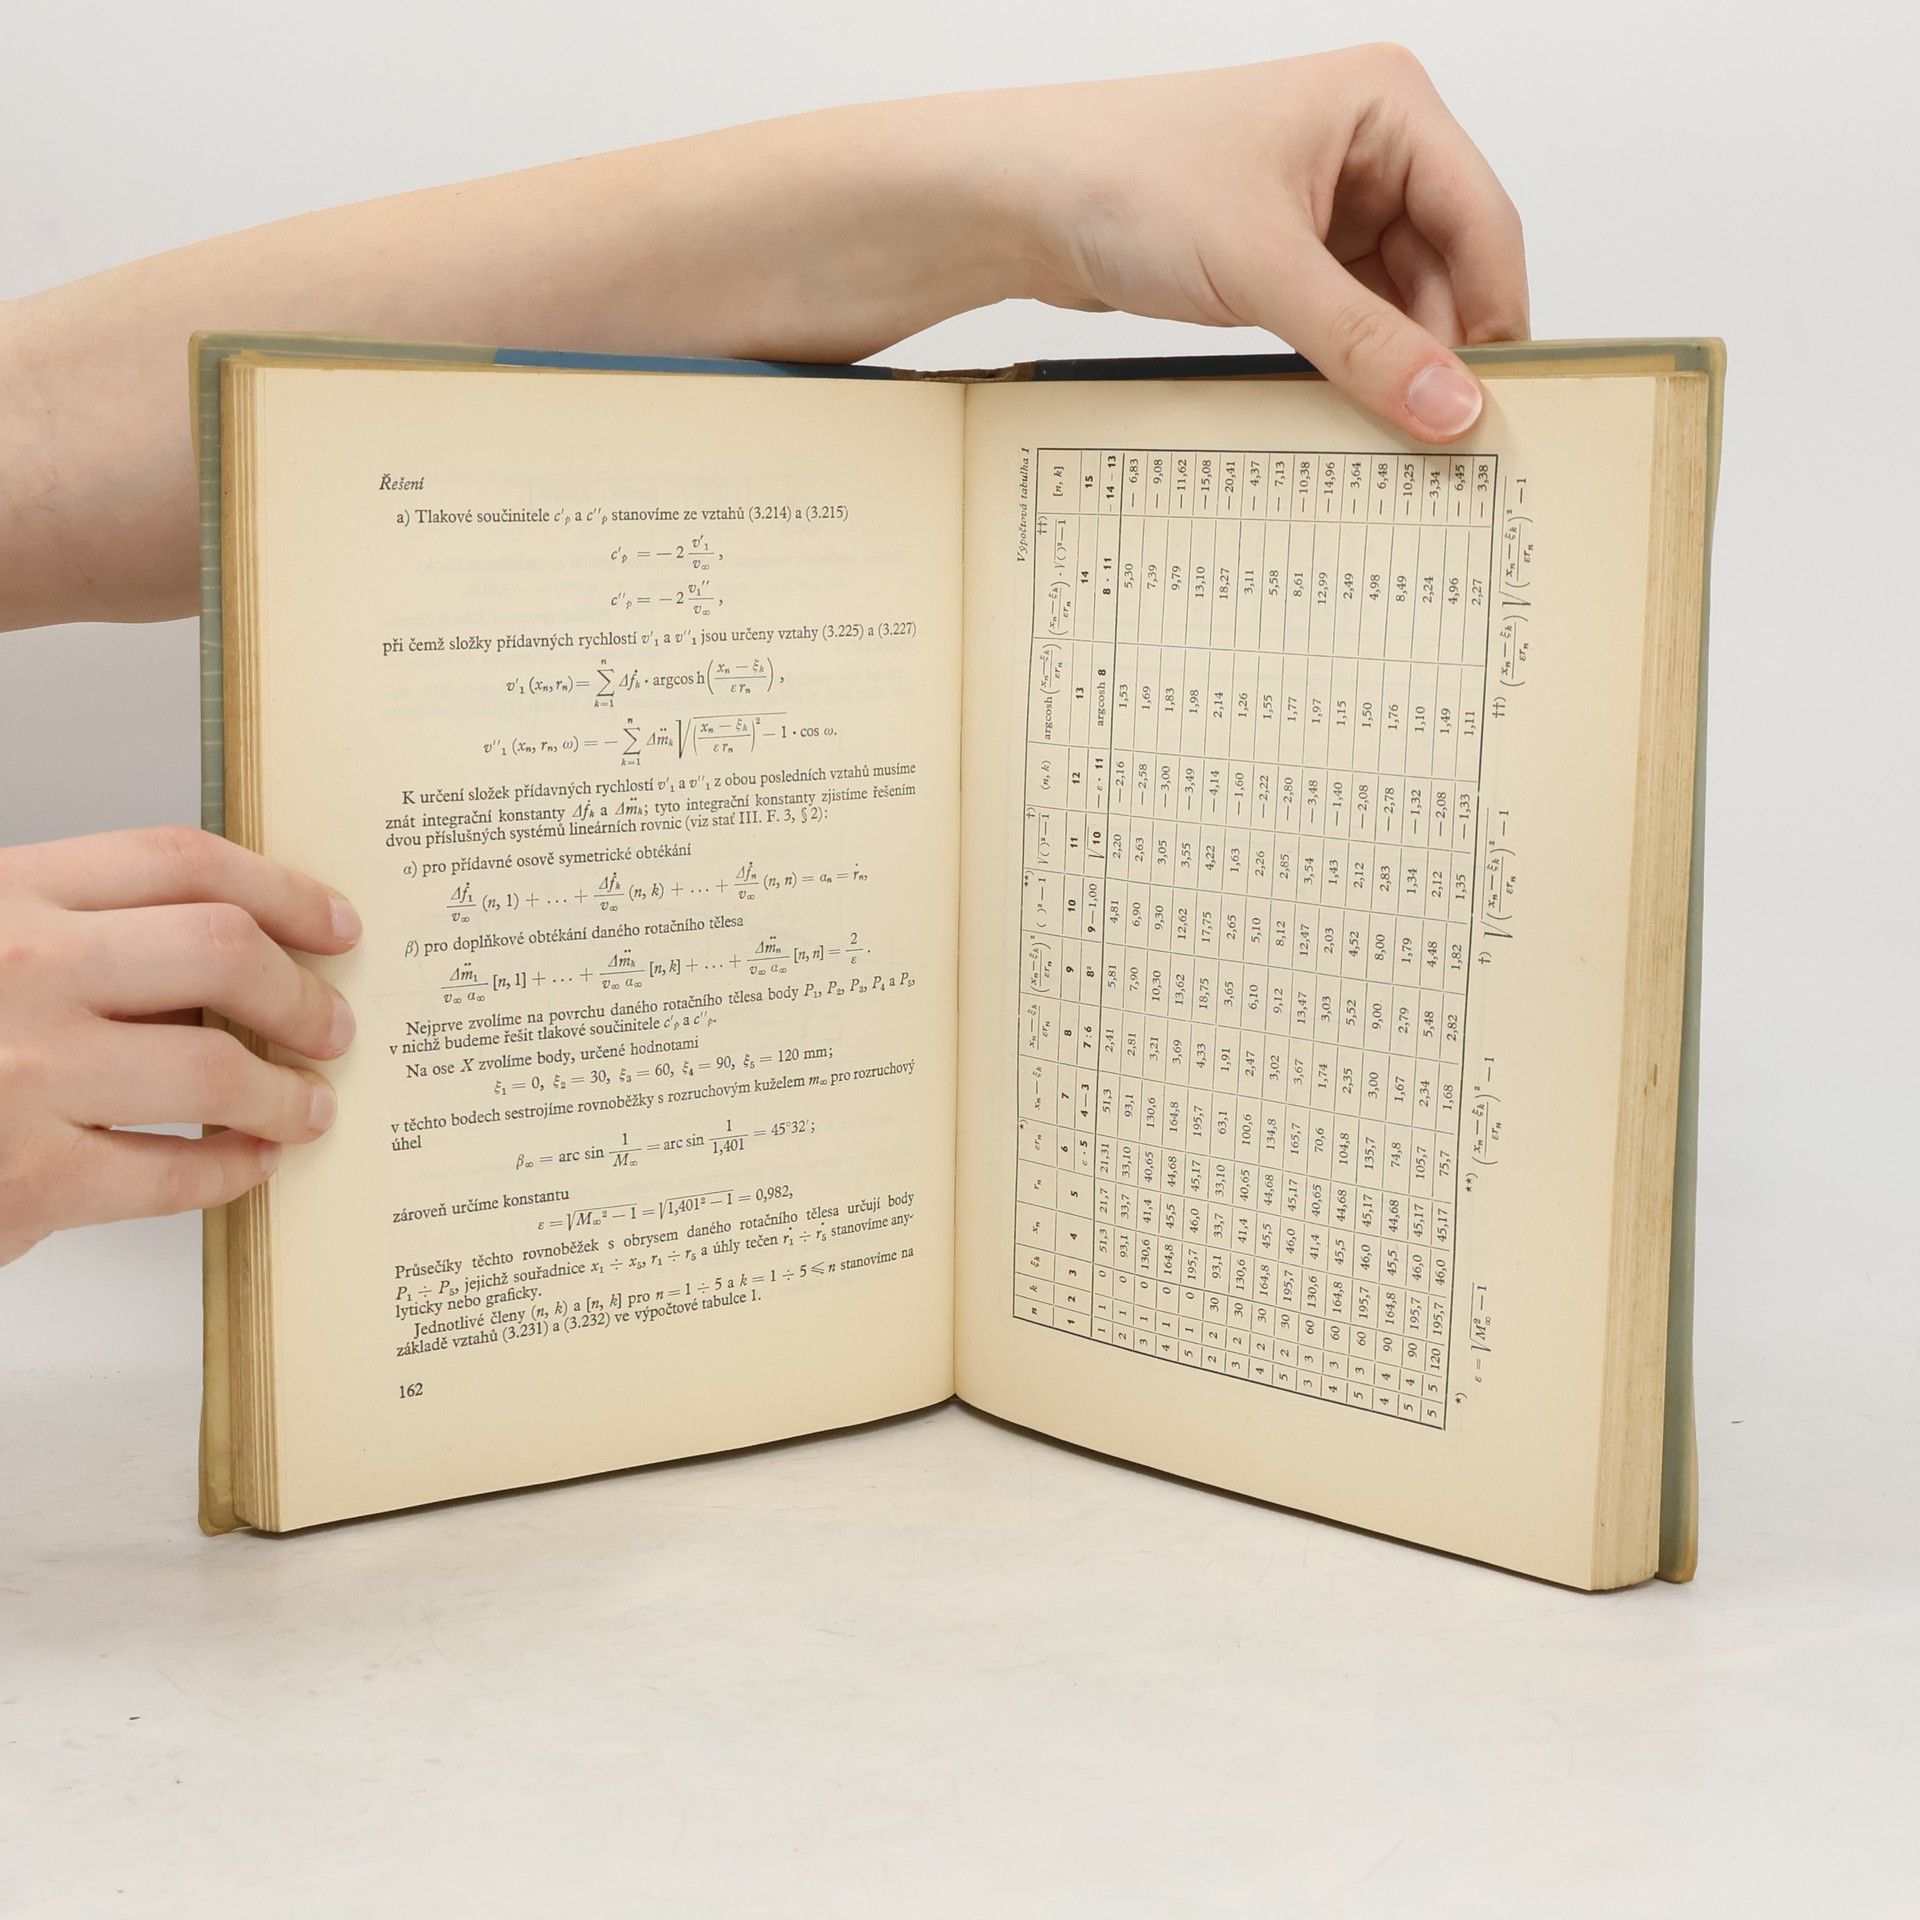 Řešení
a) Tlakové součinitele c'ₚ a c''ₚ stanovíme ze vztahů (3.214) a (3.215)
c'ₚ = — 2 v'₁/v∞ ,
c''ₚ = — 2 v₁''/v∞ ,
při čemž složky přídavných rychlostí v'₁ a v''₁ jsou určeny vztahy (3.225) a (3.227)
v'₁ (xₙ, rₙ) = Σ(k=1, n) Δḟₖ · argcos h((xₙ — ξₖ)/(ε rₙ)) ,
v''₁ (xₙ, rₙ, ω) = — Σ(k=1, n) Δm̈ₖ √(((xₙ — ξₖ)/(ε rₙ))² — 1) · cos ω.
K určení složek přídavných rychlostí v'₁ a v''₁ z obou posledních vztahů musíme
znát integrační konstanty Δḟₖ a Δm̈ₖ; tyto integrační konstanty zjistíme řešením
dvou příslušných systémů lineárních rovnic (viz stať III. F. 3, § 2):
α) pro přídavné osově symetrické obtékání
Δḟ₁/v∞ (n, 1) + ... + Δḟₖ/v∞ (n, k) + ... + Δḟₙ/v∞ (n, n) = αₙ = ṙₙ,
β) pro doplňkové obtékání daného rotačního tělesa
Δm̈₁/(v∞ α∞) [n, 1] + ... + Δm̈ₖ/(v∞ α∞) [n, k] + ... + Δm̈ₙ/(v∞ α∞) [n, n] = 2/ε .
Nejprve zvolíme na povrchu daného rotačního tělesa body P₁, P₂, P₃, P₄ a P₅,
v nichž budeme řešit tlakové součinitele c'ₚ a c''ₚ.
Na ose X zvolíme body, určené hodnotami
ξ₁ = 0, ξ₂ = 30, ξ₃ = 60, ξ₄ = 90, ξ₅ = 120 mm;
v těchto bodech sestrojíme rovnoběžky s rozruchovým kuželem m∞ pro rozruchový
úhel
β∞ = arc sin 1/M∞ = arc sin 1/1,401 = 45°32';
zároveň určíme konstantu
ε = √(M∞² — 1) = √(1,401² — 1) = 0,982,
Průsečíky těchto rovnoběžek s obrysem daného rotačního tělesa určují body
P₁ ÷ P₅, jejichž souřadnice x₁ ÷ x₅, r₁ ÷ r₅ a úhly tečen ṙ₁ ÷ ṙ₅ stanovíme any-
lyticky nebo graficky.
Jednotlivé členy (n, k) a [n, k] pro n = 1 ÷ 5 a k = 1 ÷ 5 ⩽ n stanovíme na
základě vztahů (3.231) a (3.232) ve výpočtové tabulce 1.
162
Výpočtová tabulka 1
n k ξₖ xₙ rₙ *) εrₙ xₙ — ξₖ (xₙ — ξₖ)/(εrₙ) ((xₙ — ξₖ)/(εrₙ))² **) ( )² — 1 †) √( )² — 1 (n, k) argcosh ((xₙ — ξₖ)/(εrₙ)) ††) ((xₙ — ξₖ)/(εrₙ)) · √( )² — 1 [n, k]
1 2 3 4 5 6 7 8 9 10 11 12 13 14 15
ε · 5 4 — 3 7 : 6 8² 9 — 1,00 √10 — ε · 11 argcosh 8 8 · 11 14 — 13
1 1 0 51,3 21,7 21,31 51,3 2,41 5,81 4,81 2,20 — 2,16 1,53 5,30 — 6,83
2 1 0 93,1 33,7 33,10 93,1 2,81 7,90 6,90 2,63 — 2,58 1,69 7,39 — 9,08
3 1 0 130,6 41,4 40,65 130,6 3,21 10,30 9,30 3,05 — 3,00 1,83 9,79 — 11,62
4 1 0 164,8 45,5 44,68 164,8 3,69 13,62 12,62 3,55 — 3,49 1,98 13,10 — 15,08
5 1 0 195,7 46,0 45,17 195,7 4,33 18,75 17,75 4,22 — 4,14 2,14 18,27 — 20,41
2 2 30 93,1 33,7 33,10 63,1 1,91 3,65 2,65 1,63 — 1,60 1,26 3,11 — 4,37
3 2 30 130,6 41,4 40,65 100,6 2,47 6,10 5,10 2,26 — 2,22 1,55 5,58 — 7,13
4 2 30 164,8 45,5 44,68 134,8 3,02 9,12 8,12 2,85 — 2,80 1,77 8,61 — 10,38
5 2 30 195,7 46,0 45,17 165,7 3,67 13,47 12,47 3,54 — 3,48 1,97 12,99 — 14,96
3 3 60 130,6 41,4 40,65 70,6 1,74 3,03 2,03 1,43 — 1,40 1,15 2,49 — 3,64
4 3 60 164,8 45,5 44,68 104,8 2,35 5,52 4,52 2,12 — 2,08 1,50 4,98 — 6,48
5 3 60 195,7 46,0 45,17 135,7 3,00 9,00 8,00 2,83 — 2,78 1,76 8,49 — 10,25
4 4 90 164,8 45,5 44,68 74,8 1,67 2,79 1,79 1,34 — 1,32 1,10 2,24 — 3,34
5 4 90 195,7 46,0 45,17 105,7 2,34 5,48 4,48 2,12 — 2,08 1,49 4,96 — 6,45
5 5 120 195,7 46,0 45,17 75,7 1,68 2,82 1,82 1,35 — 1,33 1,11 2,27 — 3,38
*) ε = √(M∞² — 1) **) ((xₙ — ξₖ)/(εrₙ))² — 1 †) √(((xₙ — ξₖ)/(εrₙ))² — 1) ††) ((xₙ — ξₖ)/(εrₙ)) √(((xₙ — ξₖ)/(εrₙ))² — 1)